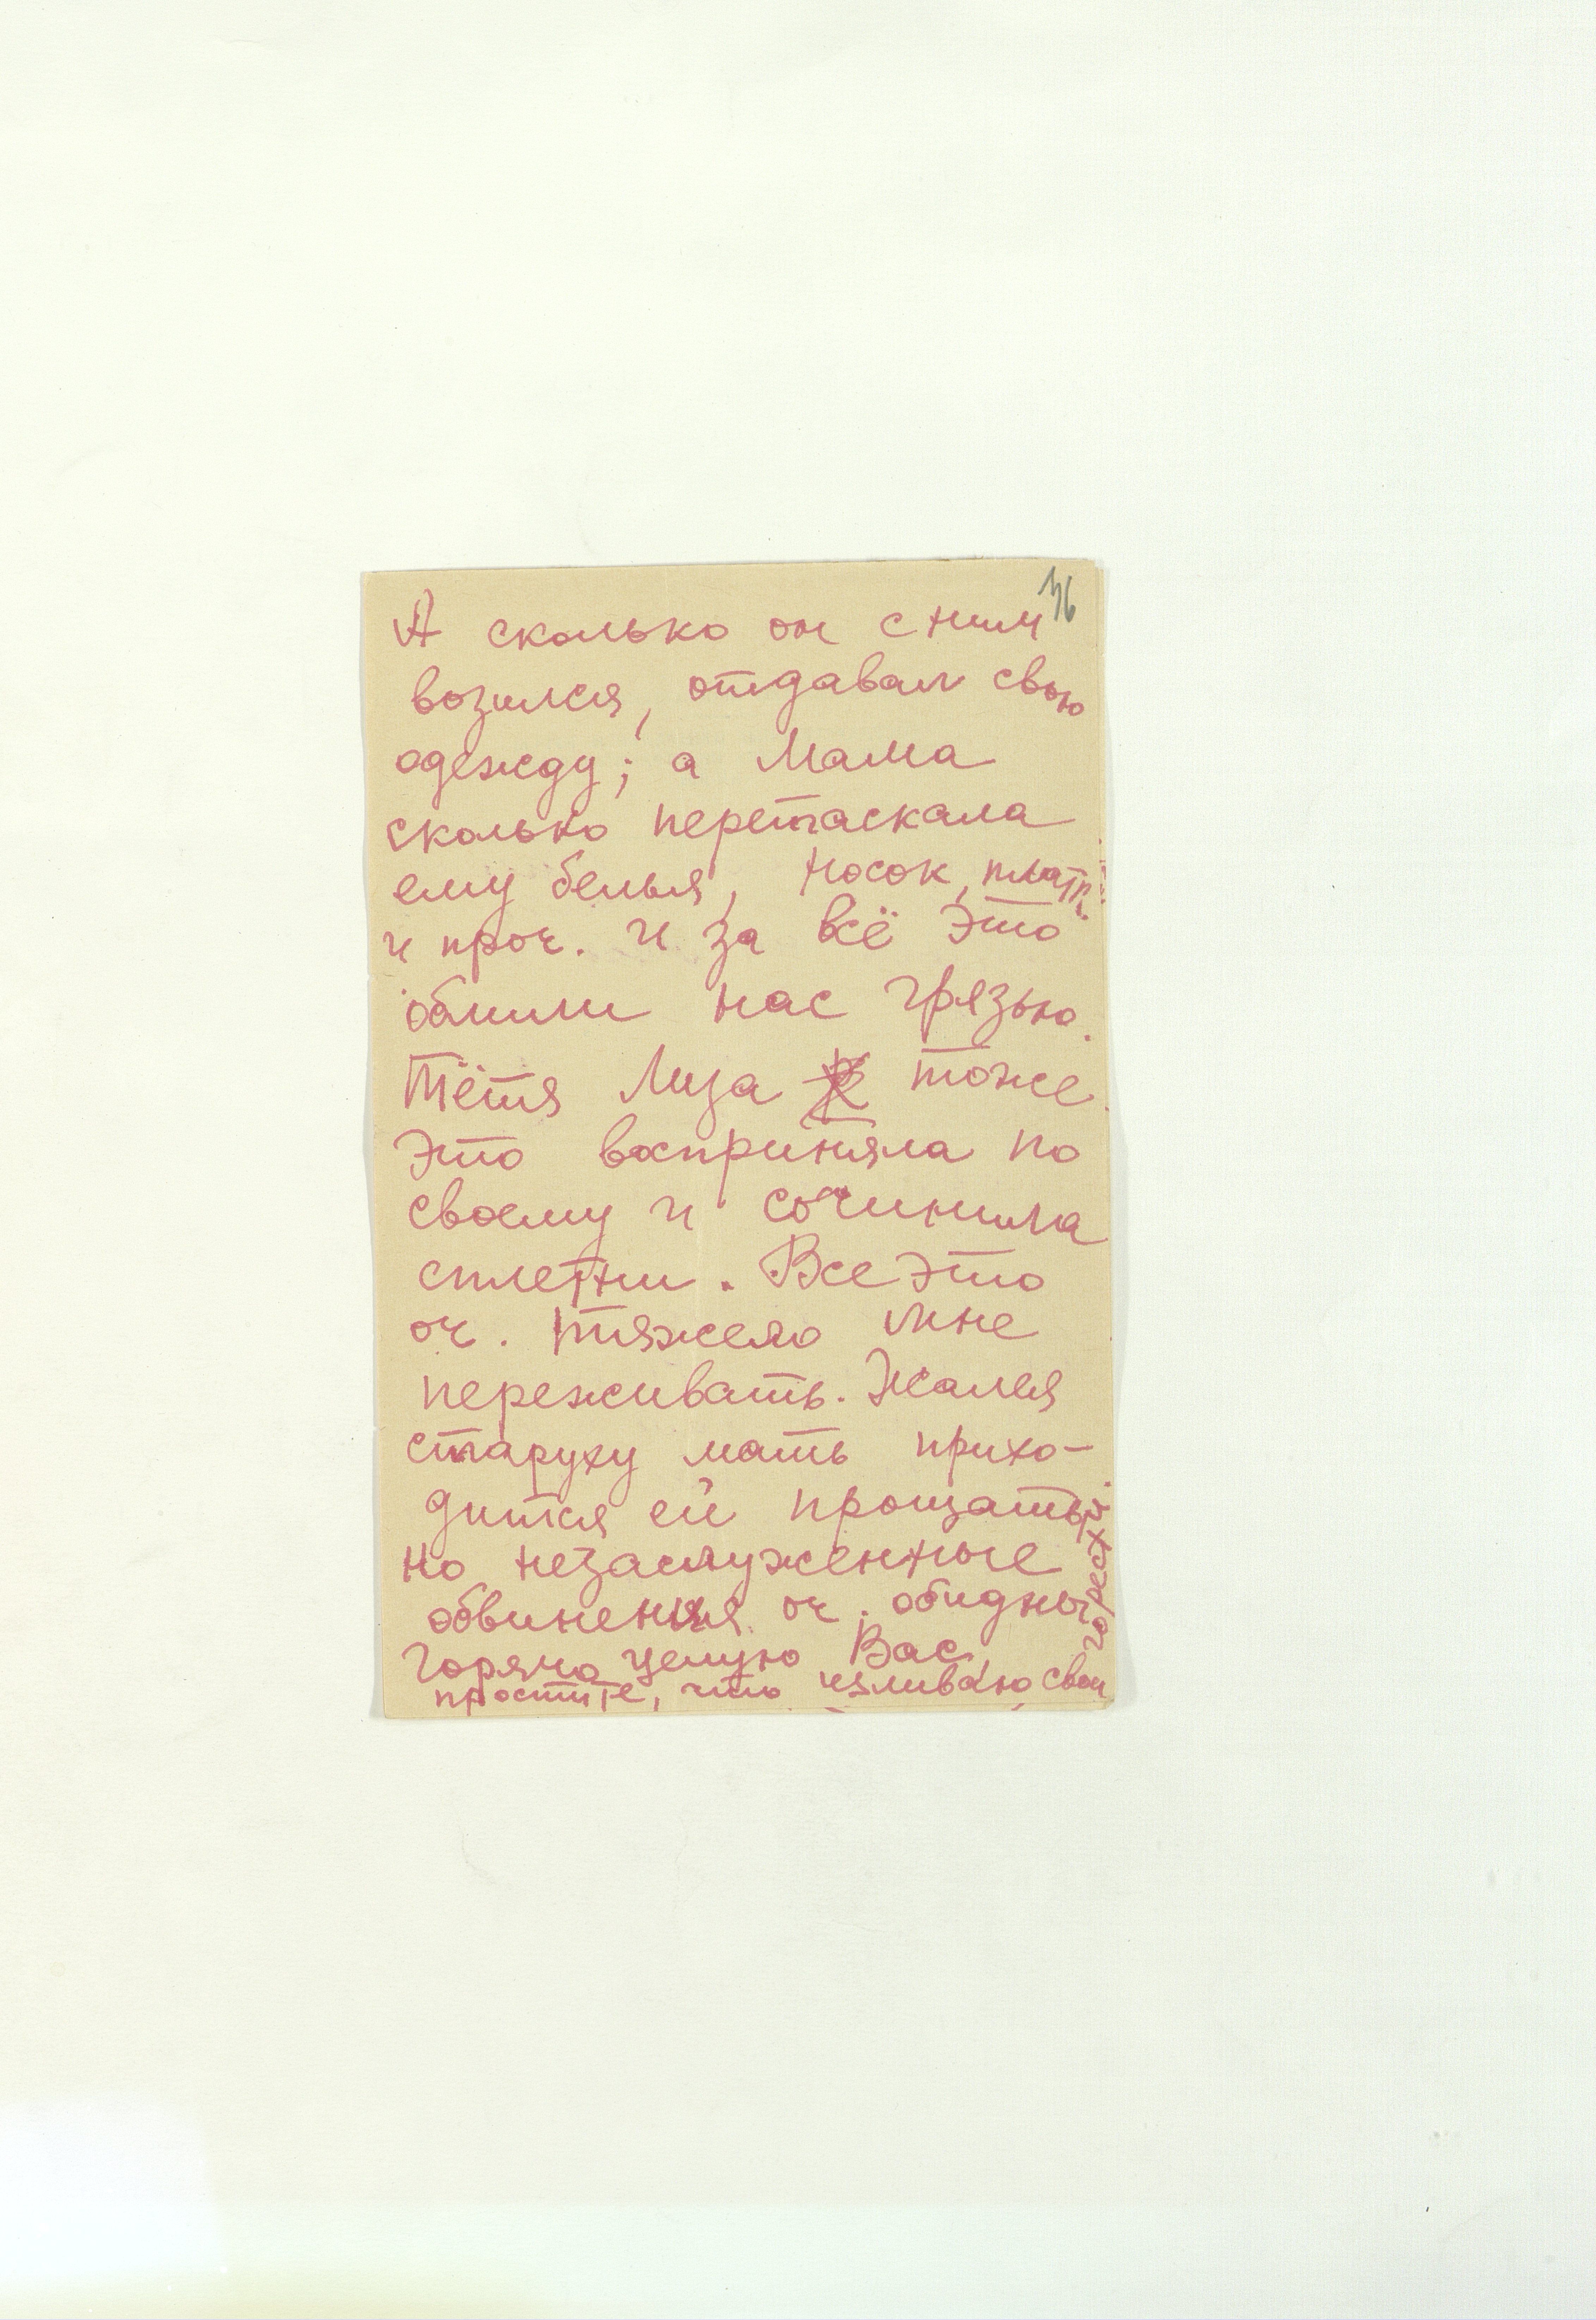 36
А сколько он с ним
возился, отдавал свою
одежду; а Мама
сколько перетаскала
ему белья, носок, платк.
и проч. И за всё это
облили нас грязью.
Тётя Лиза тоже
это восприняла по
своему и сочинила
сплетни. Все это
оч. тяжело мне
переживать. Жалея
старуху мать прихо-
дится ей прощать,
но незаслуженные
обвинения оч. обидны.
Горячо целую Вас,
простите, что изливаю свои
горести.